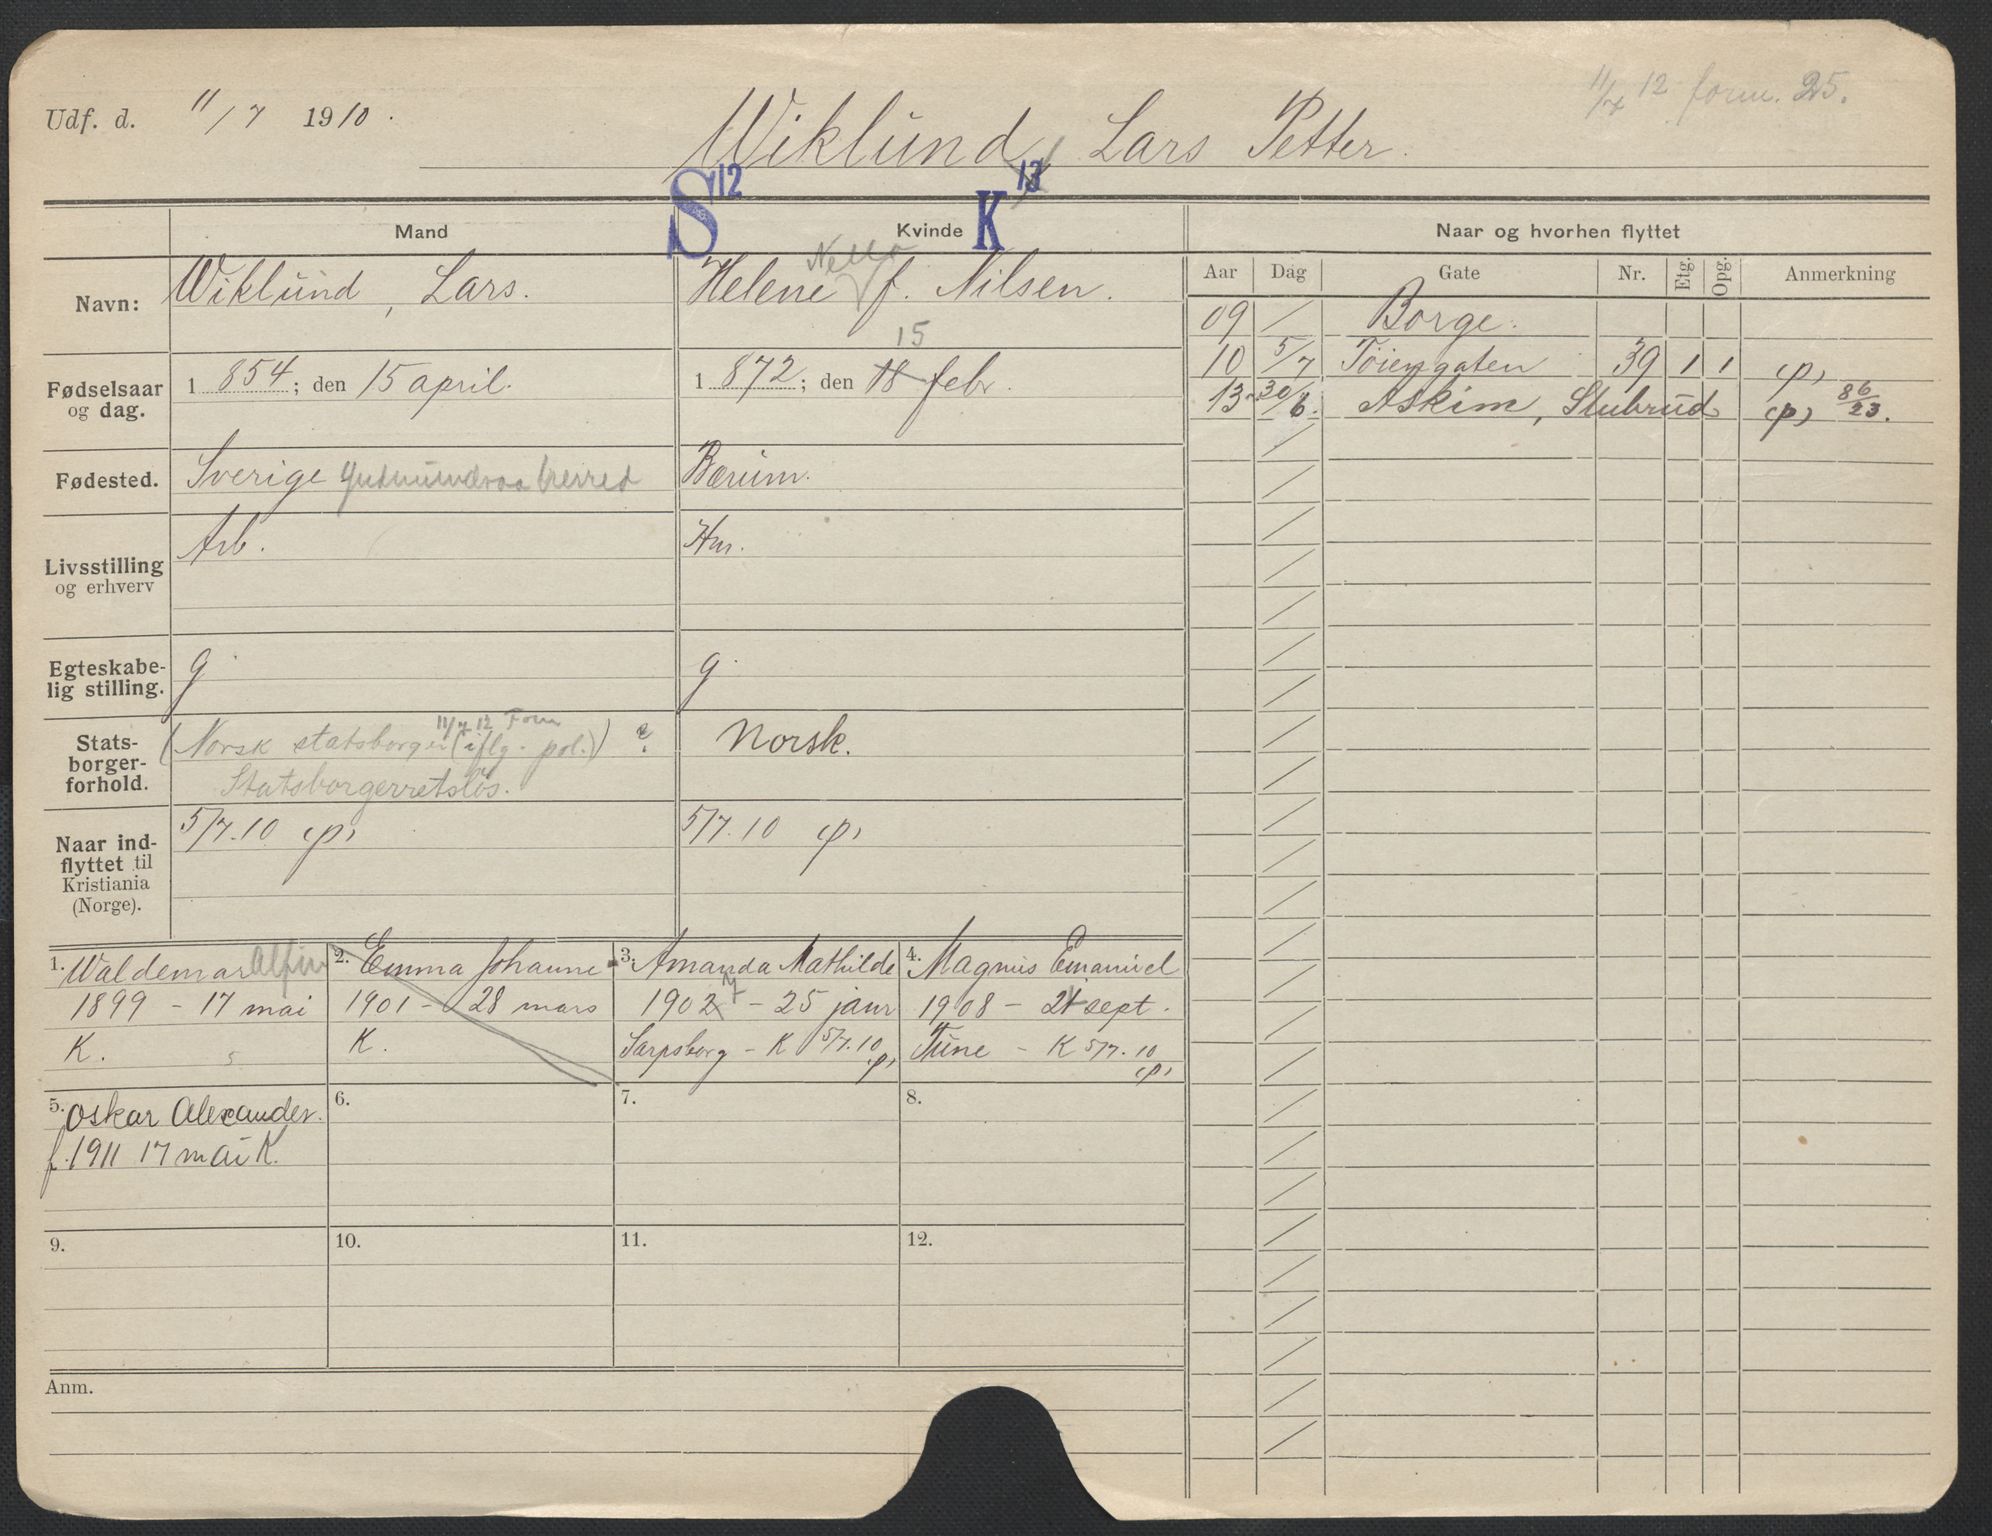 11/7 12 form. 25.
Udf. d. 11/7 1910.
Wiklund, Lars Petter.
S 12
K 13
Mand
Kvinde
Naar og hvorhen flyttet
Navn:
Wiklund, Lars.
Nella
Helene f. Nilsen.
Aar Dag Gate Nr. Etg. Opg. Anmerkning
09 / Borge.
10 5/7 Töiengaten 39 1 1 (p)
13 30/6. Askim, Stubrud (p) 86/23.
Fødselsaar
og dag.
1 854; den 15 april.
15
1 872; den 18 febr.
Fødested.
Sverige Gudmundraa herred
Bærum.
Livsstilling
og erhverv
Arb.
Hm.
Egteskabe-
lig stilling.
g.
g.
Stats-
borger-
forhold.
11/7 12 Form
(Norsk statsborger (iflg. pol.)) ?
Statsborgerretslös.
Norsk.
Naar ind-
flyttet til
Kristiania
(Norge).
5/7.10 (p)
5/7.10 (p)
1. Waldemar Alfin
1899 - 17 mai
K.
2. Emma Johanne
1901 - 28 mars
K.
3. Amanda Mathilde
1902 - 25 janr
Sarpsborg - K 5/7.10
(p)
4. Magnus Emanuel
1908 - 21 sept.
Tune - K 5/7.10
(p)
5. Oskar Alexander.
f. 1911 17 mai K.
6.
7.
8.
9.
10.
11.
12.
Anm.